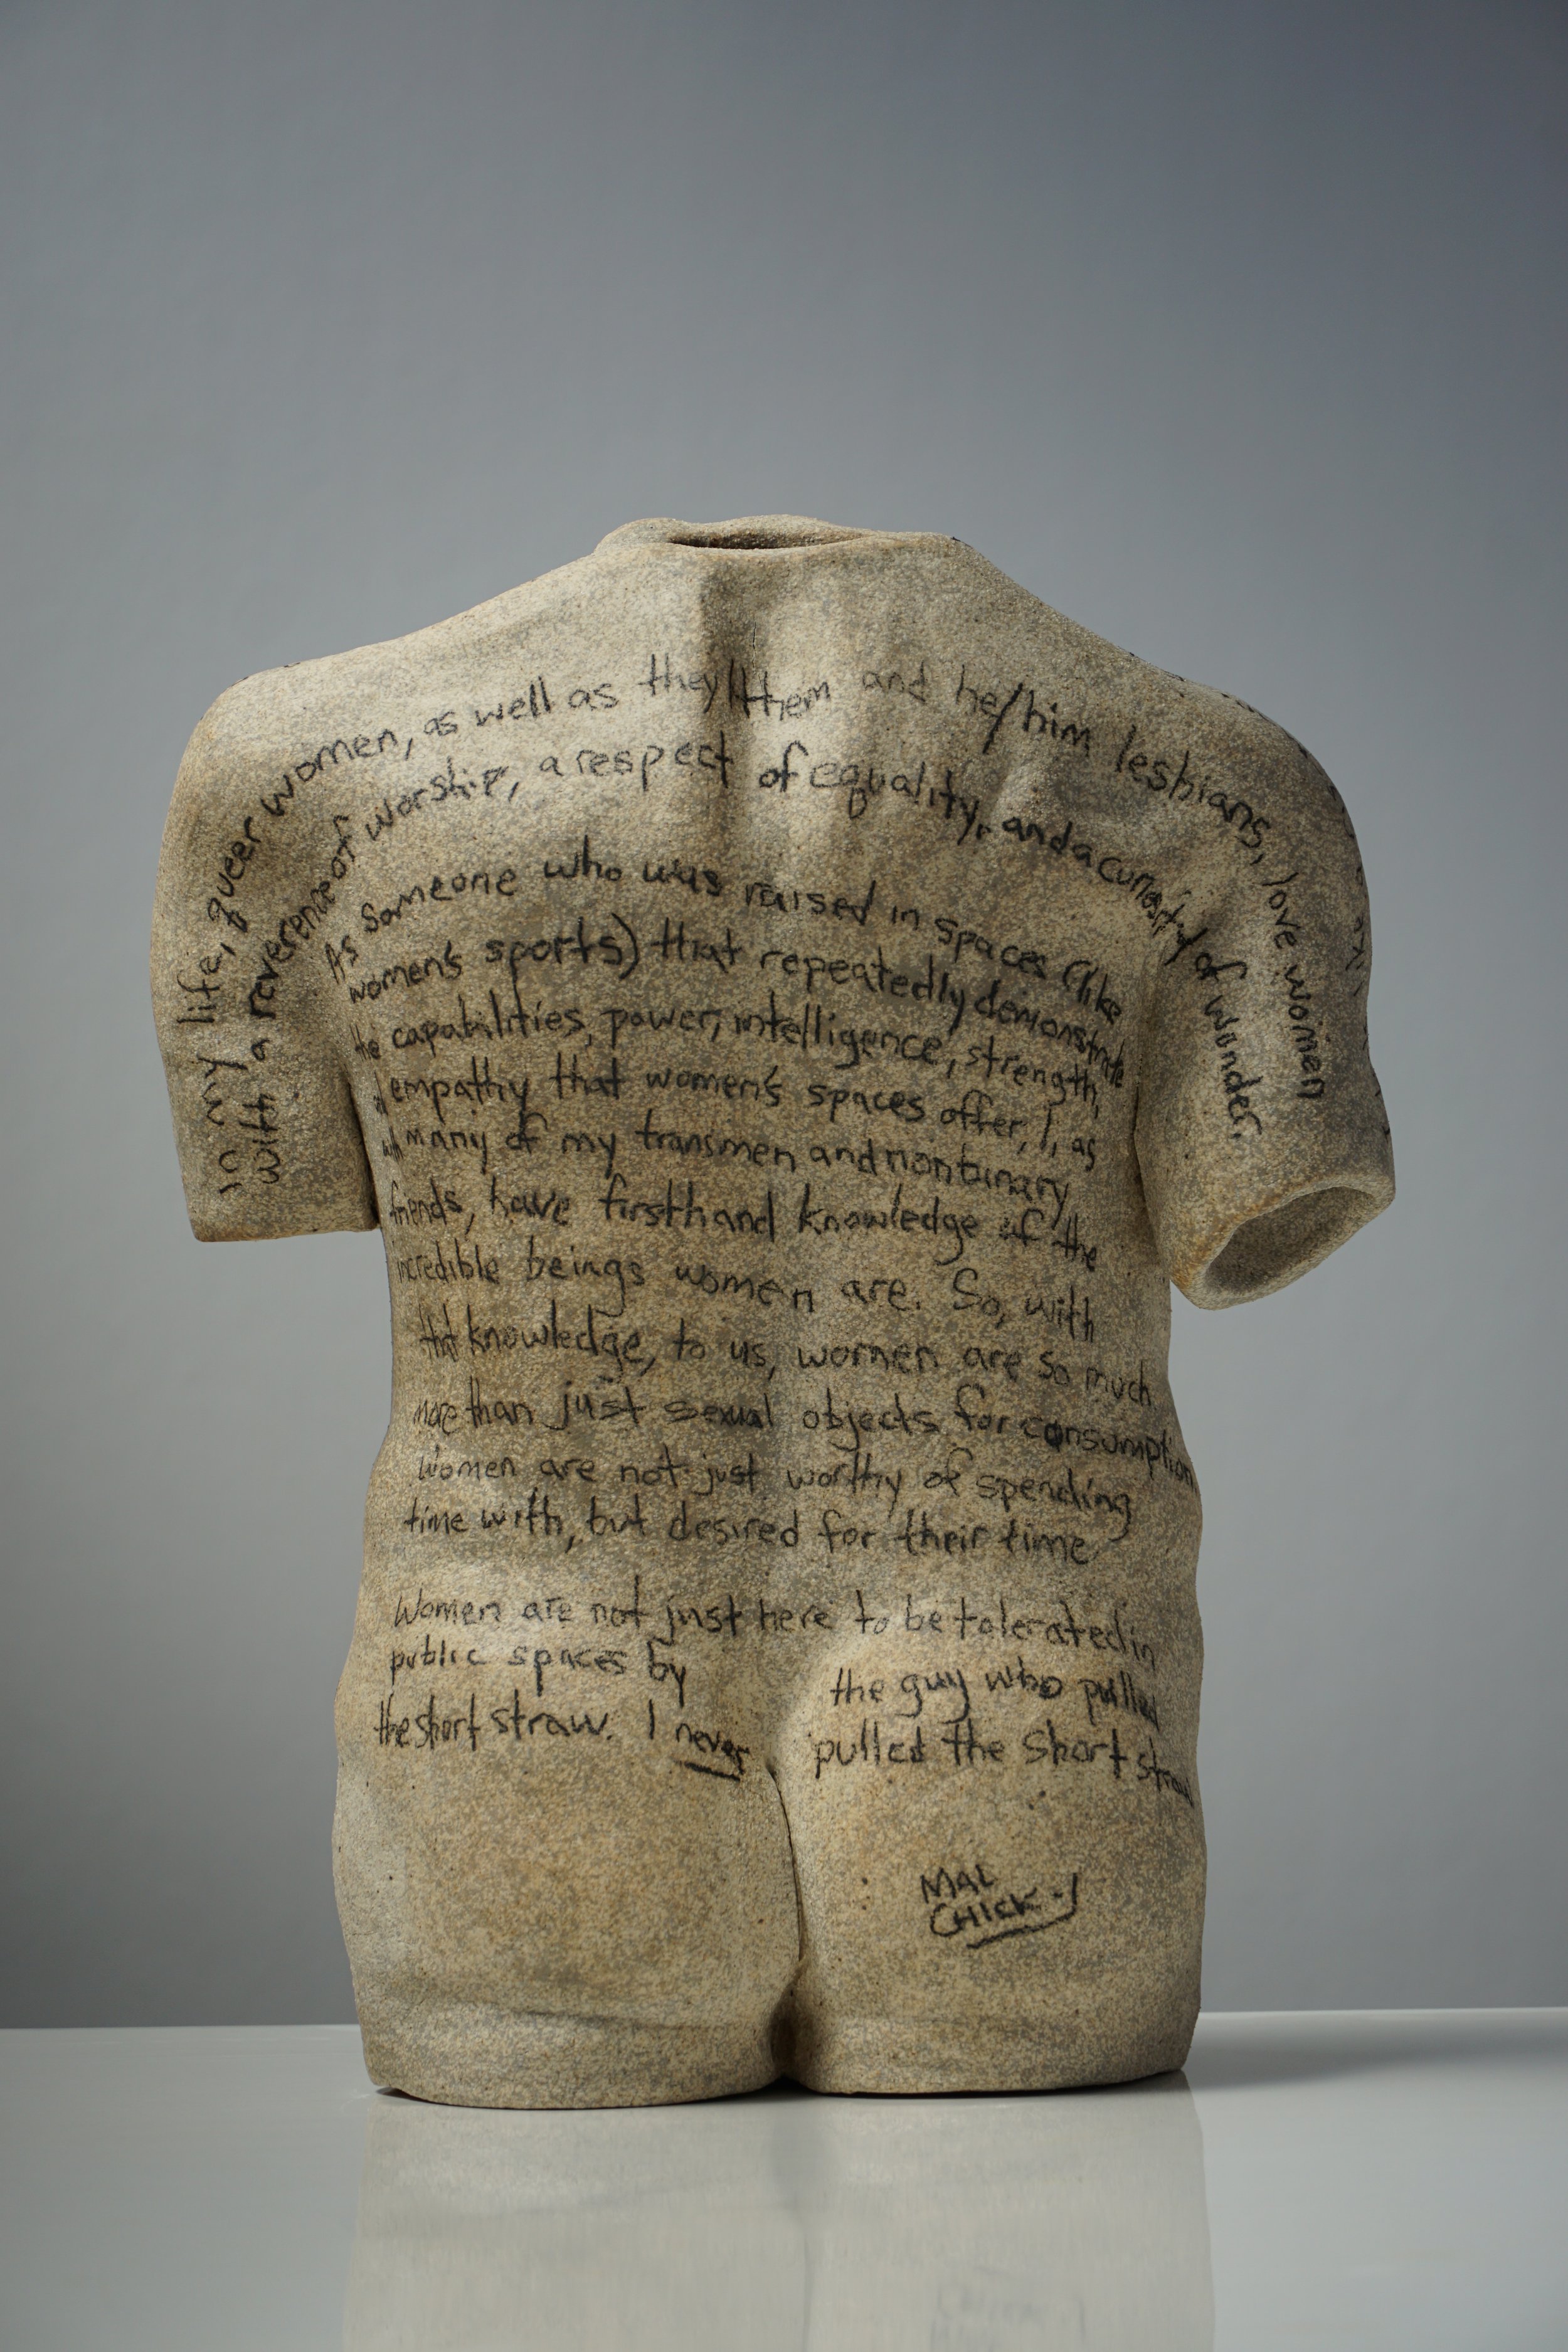 in my life, queer women, as well as they/them and he/him lesbians, love women
with a reverence of worship, a respect of equality, and a curiosity of wonder.
As someone who was raised in spaces (like
women's sports) that repeatedly demonstrate
the capabilities, power, intelligence, strength,
empathy that women's spaces offer, I, as
with many of my transmen and nonbinary
friends, have firsthand knowledge of the
incredible beings women are. So, with
that knowledge, to us, women are so much
more than just sexual objects for consumption
Women are not just worthy of spending
time with, but desired for their time
Women are not just here to be tolerated in
public spaces by the guy who pulled
the short straw. I never pulled the short straw
MAL
CHICK